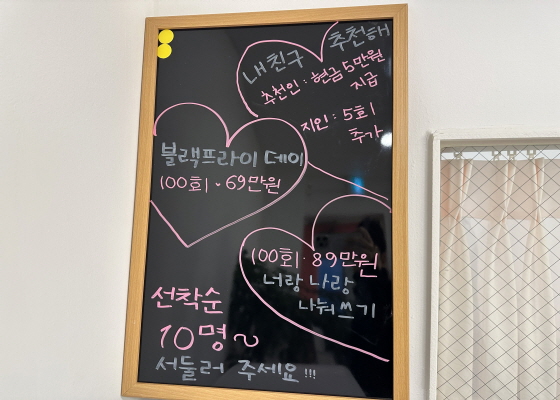 내친구 추천해
추천인 : 현금 5만원
지급
지인 : 5회
추가
블랙프라이 데이
100회 - 69만원
100회 - 89만원
너랑 나랑
나눠쓰기
선착순
10명~
서둘러 주세요!!!